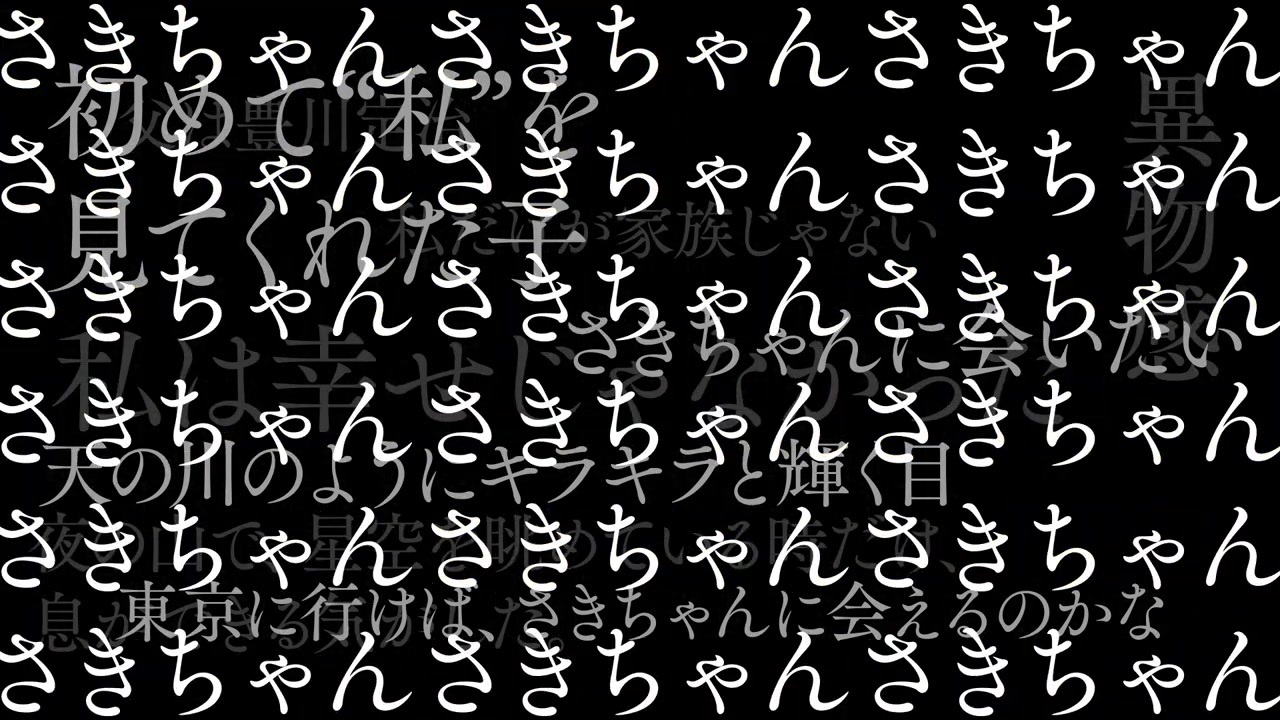 さきちゃんさきちゃんさきちゃん
初めて“私”を
父は豊川定治
異物感
さきちゃんさきちゃんさきちゃん
見てくれた子
私だけが家族じゃない
さきちゃんさきちゃんさきちゃん
さきちゃんに会いたい
私は幸せじゃなかった
さきちゃんさきちゃんさきちゃん
天の川のようにキラキラと輝く目
さきちゃんさきちゃんさきちゃん
夜の山で、星空を眺めている時だけ、
東京に行けば、さきちゃんに会えるのかな
さきちゃんさきちゃんさきちゃん